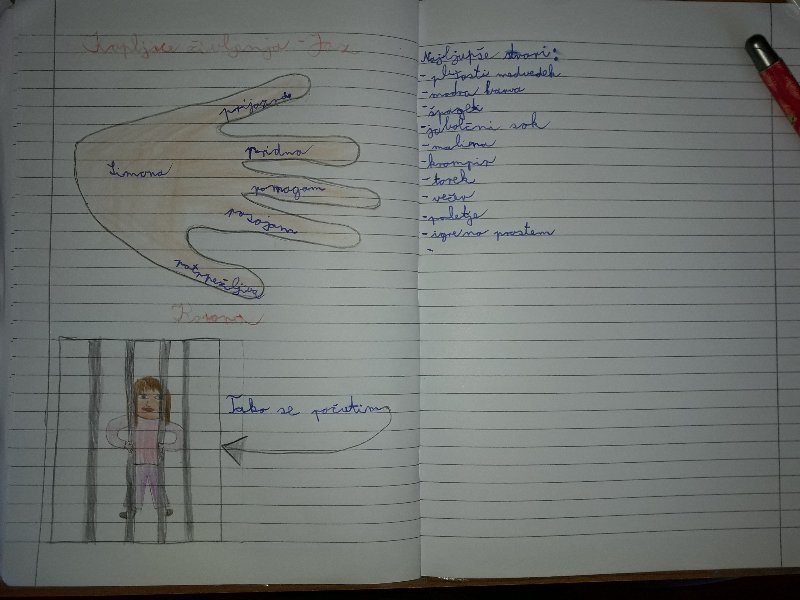 Kapljice življenja - Jaz
prijazna
pridna
Simona
pomagam
posojam
potrpežljiva
Korona
Tako se počutim
Najljupše stvari:
- plišasti medvedek
- modra barva
- špageti
- jabolčni sok
- malina
- krompir
- torek
- večer
- poletje
- igre na prostem
-